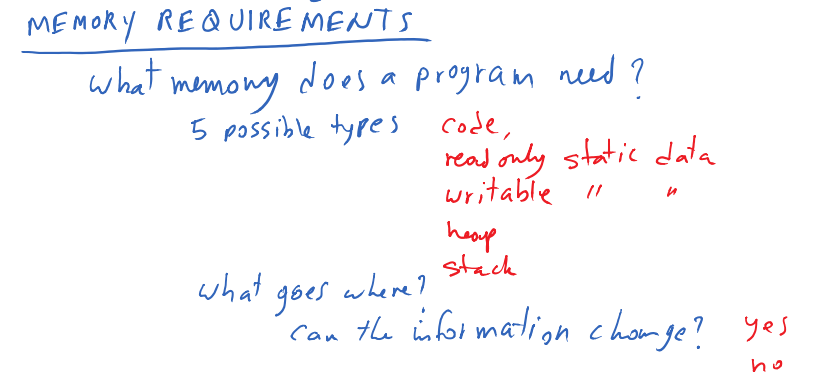 MEMORY REQUIREMENTS
What memory does a program need?
5 possible types code,
read only static data
writable " "
heap
stack
What goes where?
can the information change? yes
no